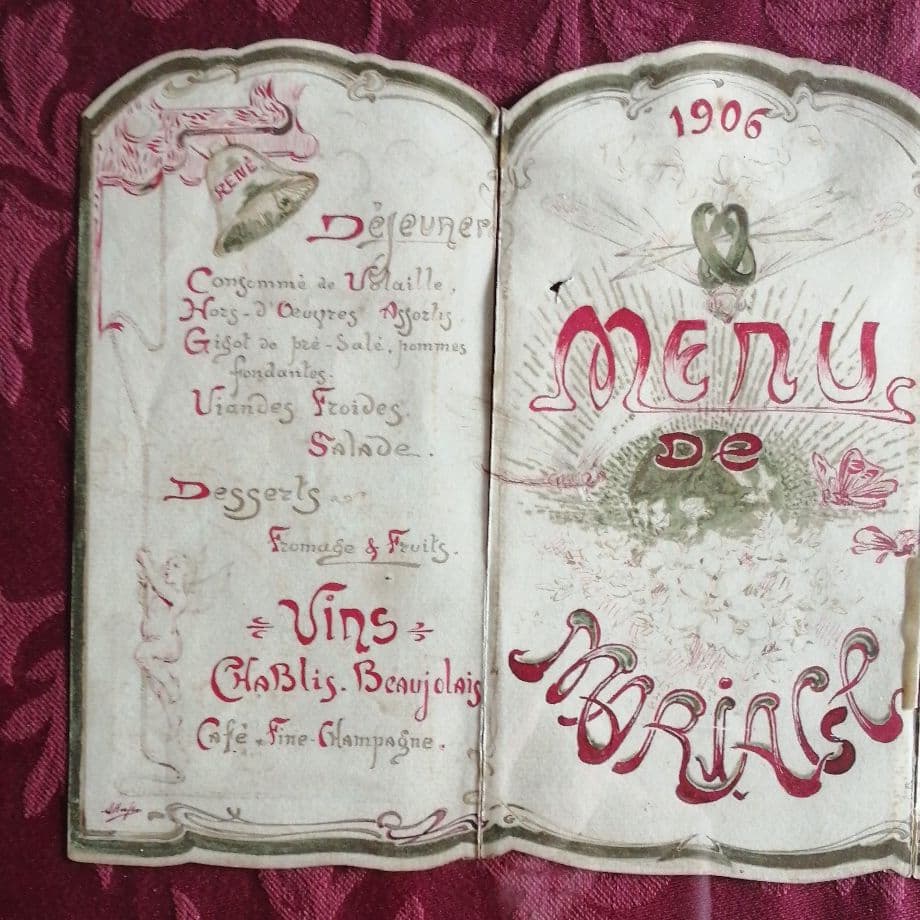 RENÉ
Déjeuner
Consommé de Volaille.
Hors-d'Oeuvres Assortis.
Gigot de pré-Salé, pommes
fondantes.
Viandes Froides.
Salade.
Desserts
Fromage & Fruits.
Vins
Chablis. Beaujolais
Café. Fine-Champagne.
1906
MENU
DE
MARIAGE